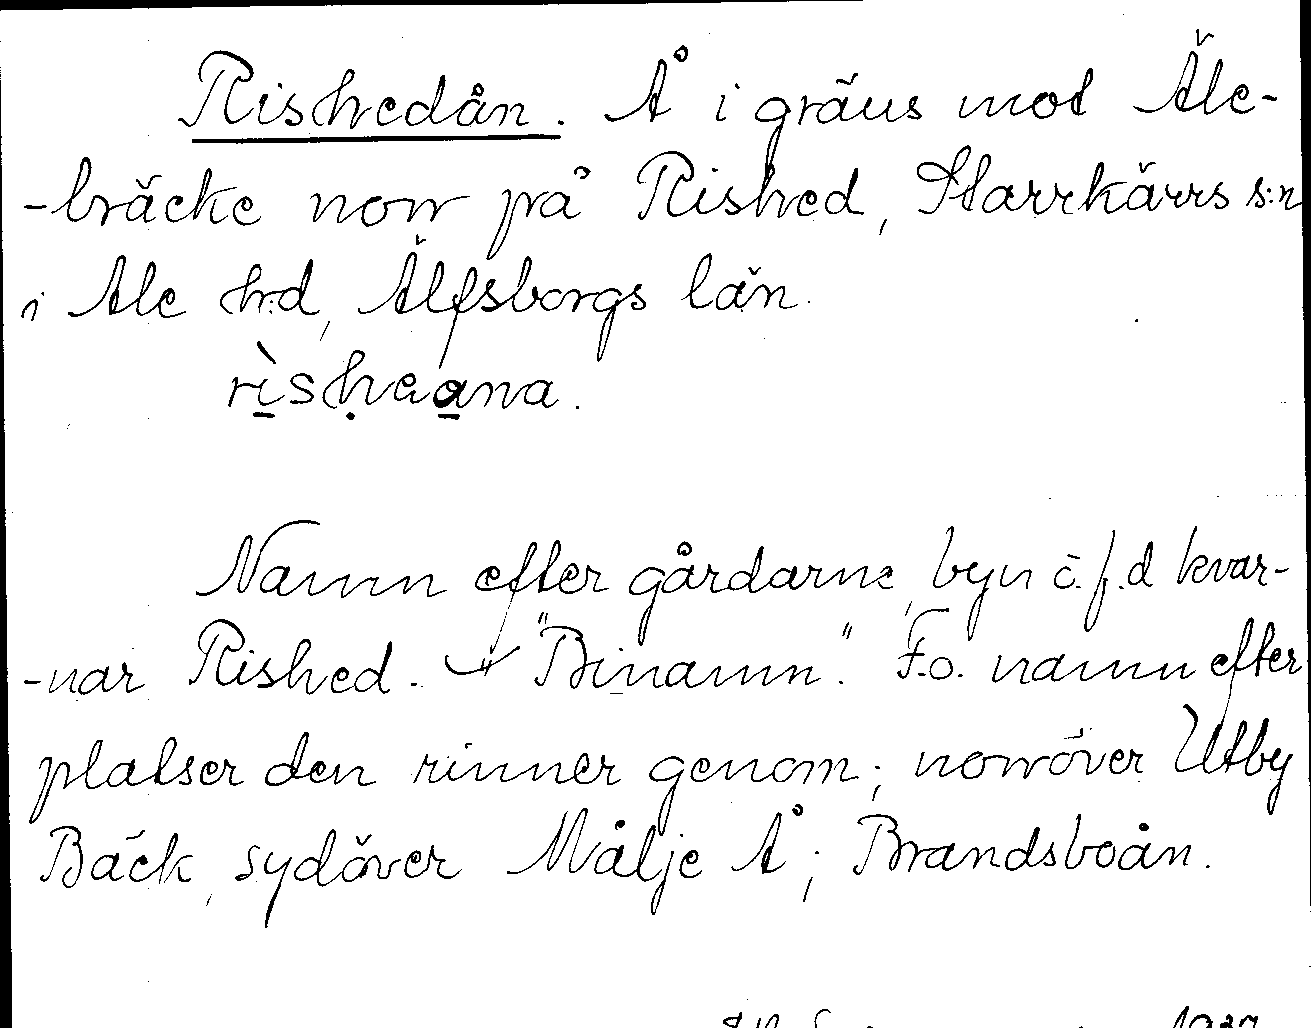 Rishedån. Å i gräns mot Äle-
-bräcke norr på Rished, Starrkärrs s:n
i Ale h:d, Älfsborgs län.
rìsheana.
Namn efter gårdarne, byn o. f.d kvar-
-nar Rished. - "Binamn". F.ö. namn efter
platser den rinner genom; norröver Utby
Bäck, sydöver Målje Å; Brandsboån.